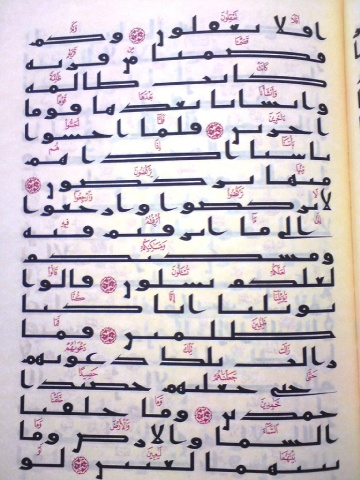 افلا تعقلون ۝ وكم
قصمنا من قرية
كانت ظالمة
وانشانا بعدها قوما
اخرين ۝ فلما احسوا
باسنا اذا هم
منها يركضون ۝
لا تركضوا وارجعوا
الى ما اترفتم فيه
ومسكنكم
لعلكم تسلون ۝ قالوا
يويلنا انا كنا
ظلمين ۝ فما
زالت تلك دعويهم
حتى جعلنهم حصيدا
خمدين ۝ وما خلقنا
السما والارض وما
بينهما لعبين ۝ لو